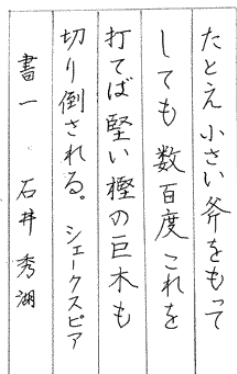 たとえ 小さい斧をもって
しても 数百度これを
打てば 堅い樫の巨木も
切り倒される。 シェークスピア
書一 石井秀湖